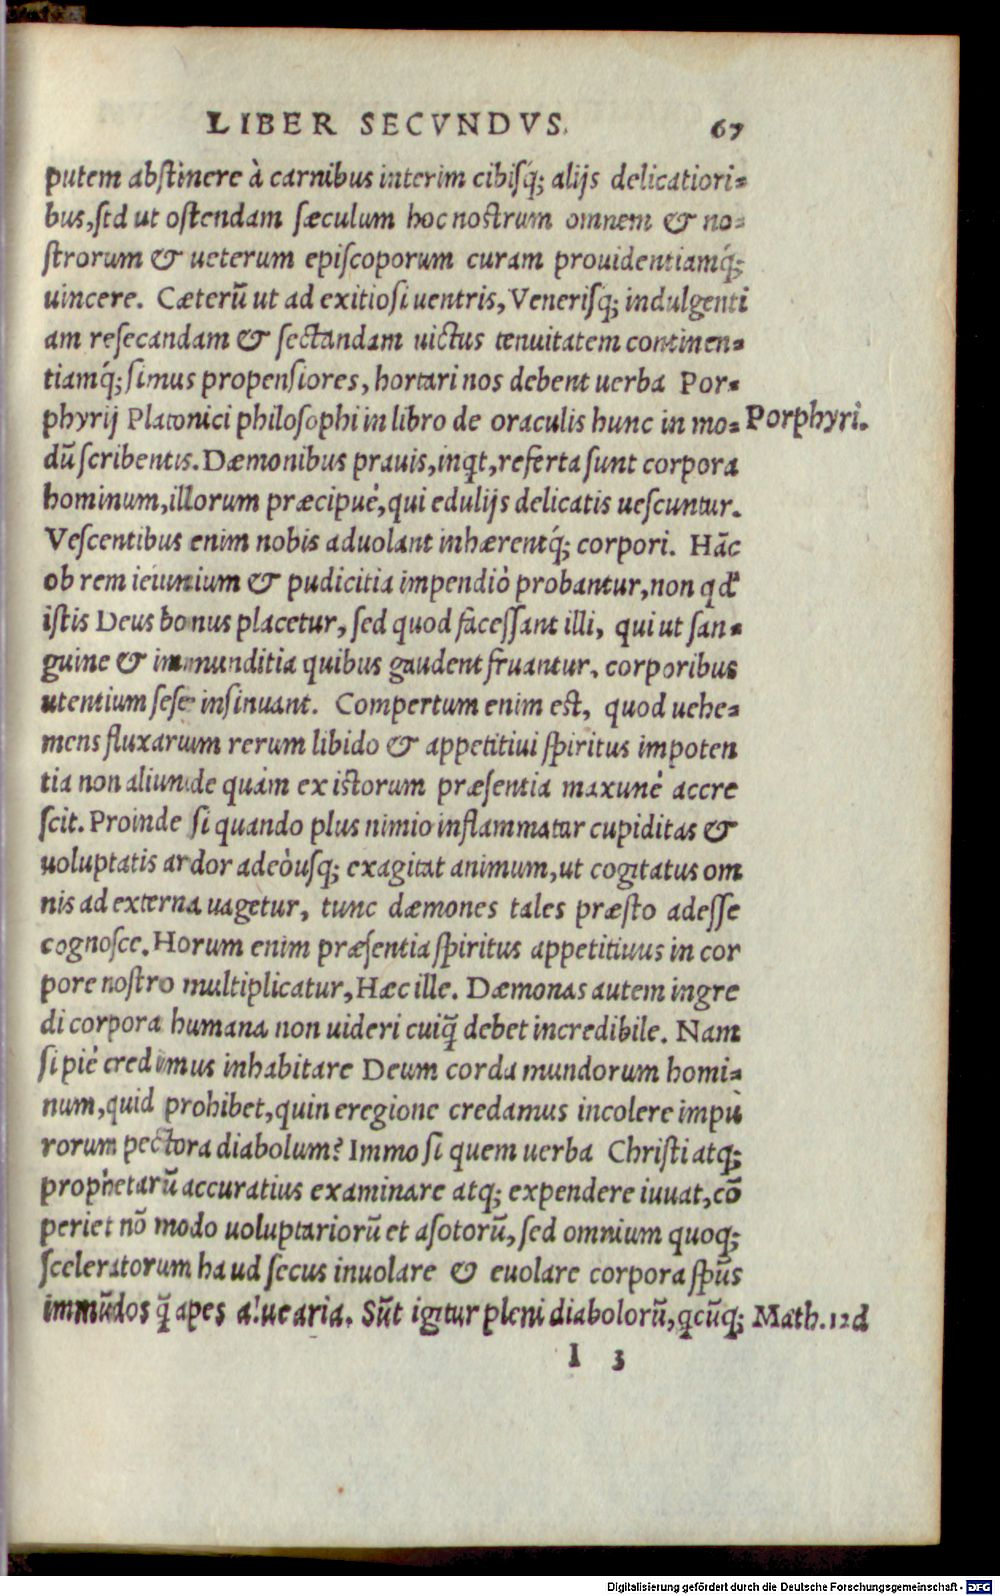 LIBER SECVNDVS. 67
putem abstinere à carnibus interim cibisq́; alijs delicatiori-
bus, sed ut ostendam sæculum hoc nostrum omnem & no-
strorum & ueterum episcoporum curam prouidentiamq́;
uincere. Cæterũ ut ad exitiosi uentris, Venerisq́; indulgenti
am resecandam & sectandam uictus tenuitatem continen-
tiamq́; simus propensiores, hortari nos debent uerba Por-
phyrij Platonici philosophi in libro de oraculis hunc in mo- Porphyri.
dũ scribentis. Dæmonibus prauis, inqt, referta sunt corpora
hominum, illorum præcipuè, qui edulijs delicatis uescuntur.
Vescentibus enim nobis aduolant inhærentq́; corpori. Hãc
ob rem ieiunium & pudicitia impendiò probantur, non qđ
istis Deus bonus placetur, sed quod facessant illi, qui ut san-
guine & immunditia quibus gaudent fruantur, corporibus
utentium sese insinuant. Compertum enim est, quod uehe-
mens fluxarum rerum libido & appetitiui spiritus impoten
tia non aliunde quàm ex istorum præsentia maxumè accre
scit. Proinde si quando plus nimio inflammatur cupiditas &
uoluptatis ardor adeòusq; exagitat animum, ut cogitatus om
nis ad externa uagetur, tunc dæmones tales præsto adesse
cognosce. Horum enim præsentia spiritus appetitiuus in cor
pore nostro multiplicatur, Hæc ille. Dæmonas autem ingre
di corpora humana non uideri cuiq̃ debet incredibile. Nam
si piè credimus inhabitare Deum corda mundorum homi-
num, quid prohibet, quin eregione credamus incolere impu
rorum pectora diabolum? Immo si quem uerba Christi atq;
prophetarũ accuratius examinare atq; expendere iuuat, cõ
periet nõ modo uoluptariorũ et asotorũ, sed omnium quoq;
sceleratorum haud secus inuolare & euolare corpora spũs
immũdos q̃ apes aluearia. Sũt igitur pleni diabolorũ, qcũq; Math. 12 d
I 3
Digitalisierung gefördert durch die Deutsche Forschungsgemeinschaft - DFG